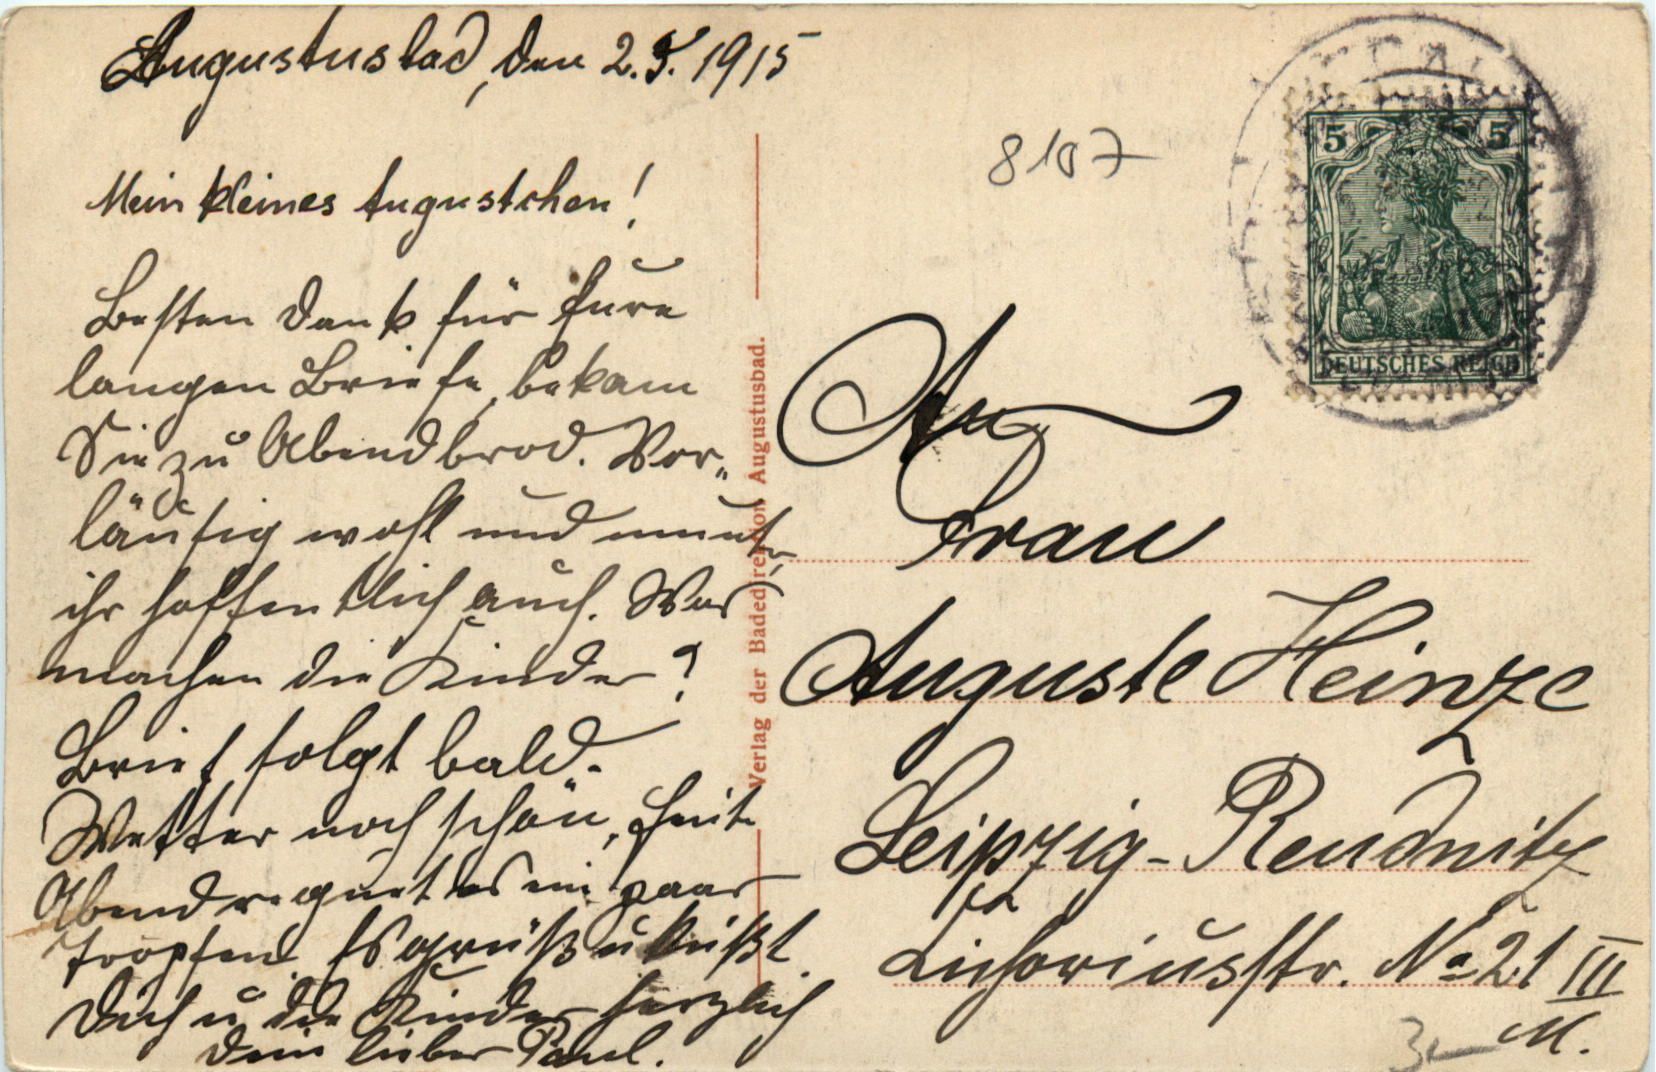 Augustusbad, den 2.5.1915
Mein kleines Augustchen!
Besten Dank für Eure
langen Briefe, bekam
Sie zu Abendbrod. Vor-
läufig wohl und munter,
ihr hoffentlich auch. Was
machen die Kinder?
Brief folgt bald.
Wetter noch schön, heute
Abend regnet es ein paar
Tropfen. Es grüßt u küßt
Dich u. die Kinder herzlich
Dein lieber Paul.
Verlag der Badedirektion Augustusbad.
8107
5 5
DEUTSCHES REICH
An
Frau
Auguste Heinze
Leipzig-Reudnitz
str. No 21 III
M.
3-